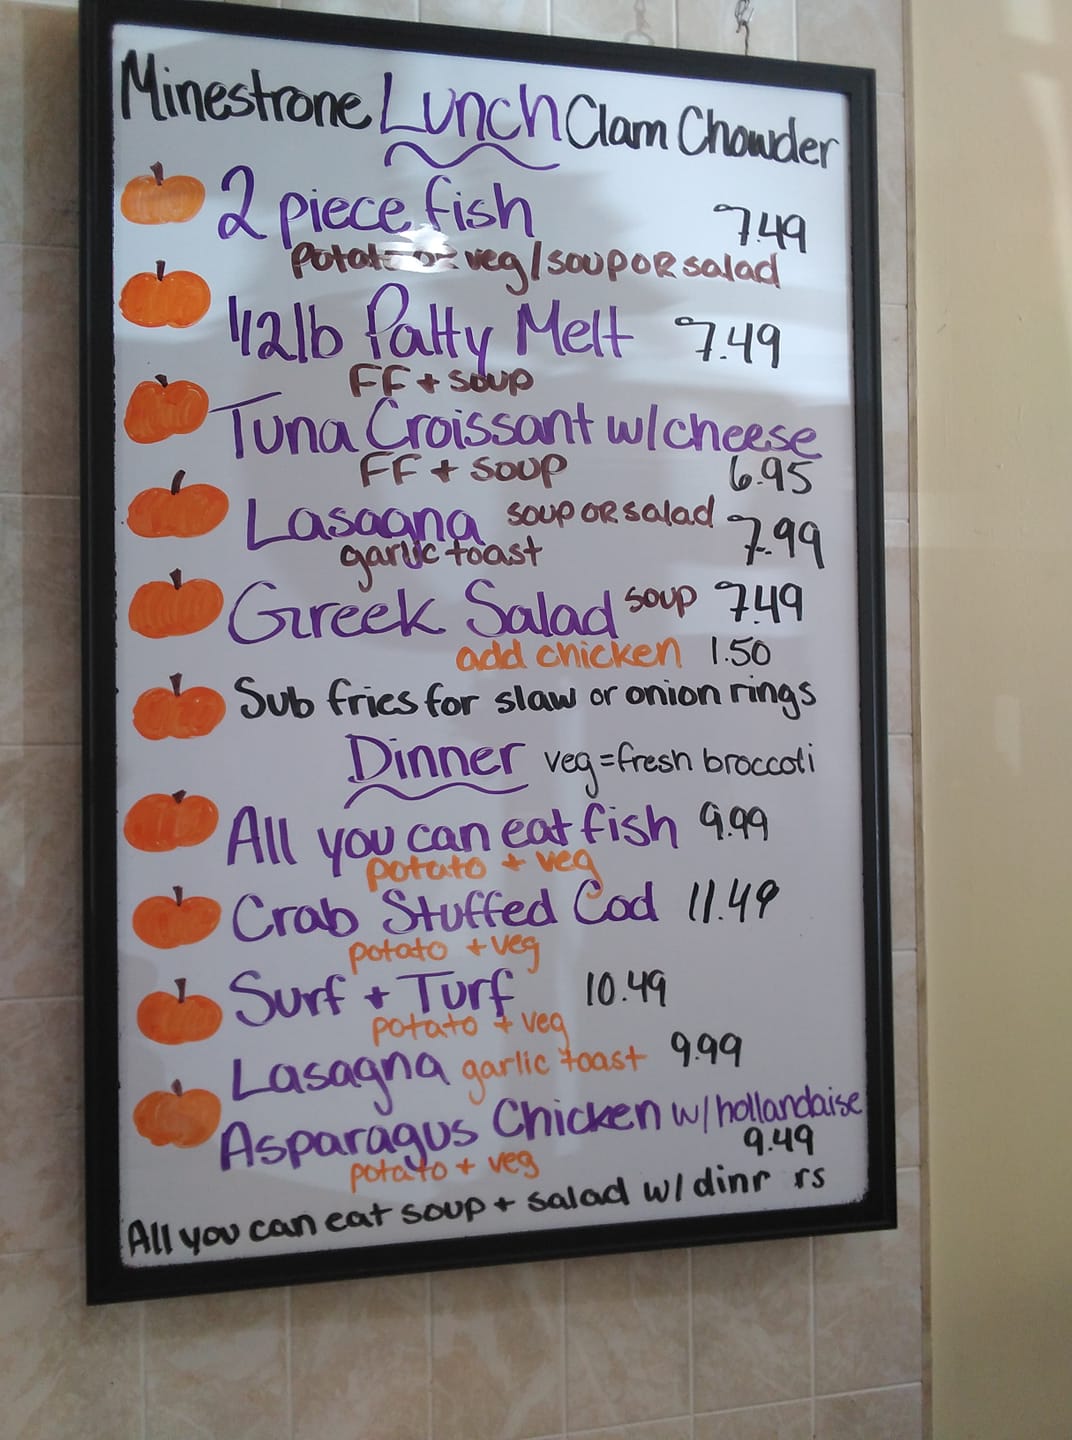 Minestrone Lunch Clam Chowder
2 piece fish 7.49
potato or veg/soup OR salad
1/2 lb Patty Melt 7.49
FF + soup
Tuna Croissant w/cheese
FF + soup 6.95
Lasagna soup OR salad 7.99
garlic toast
Greek Salad soup 7.49
add chicken 1.50
Sub fries for slaw or onion rings
Dinner veg=fresh broccoli
All you can eat fish 9.99
potato + veg
Crab Stuffed Cod 11.49
potato + veg
Surf + Turf 10.49
potato + veg
Lasagna garlic toast 9.99
Asparagus Chicken w/hollandaise
9.49
potato + veg
All you can eat soup + salad w/ dinr rs